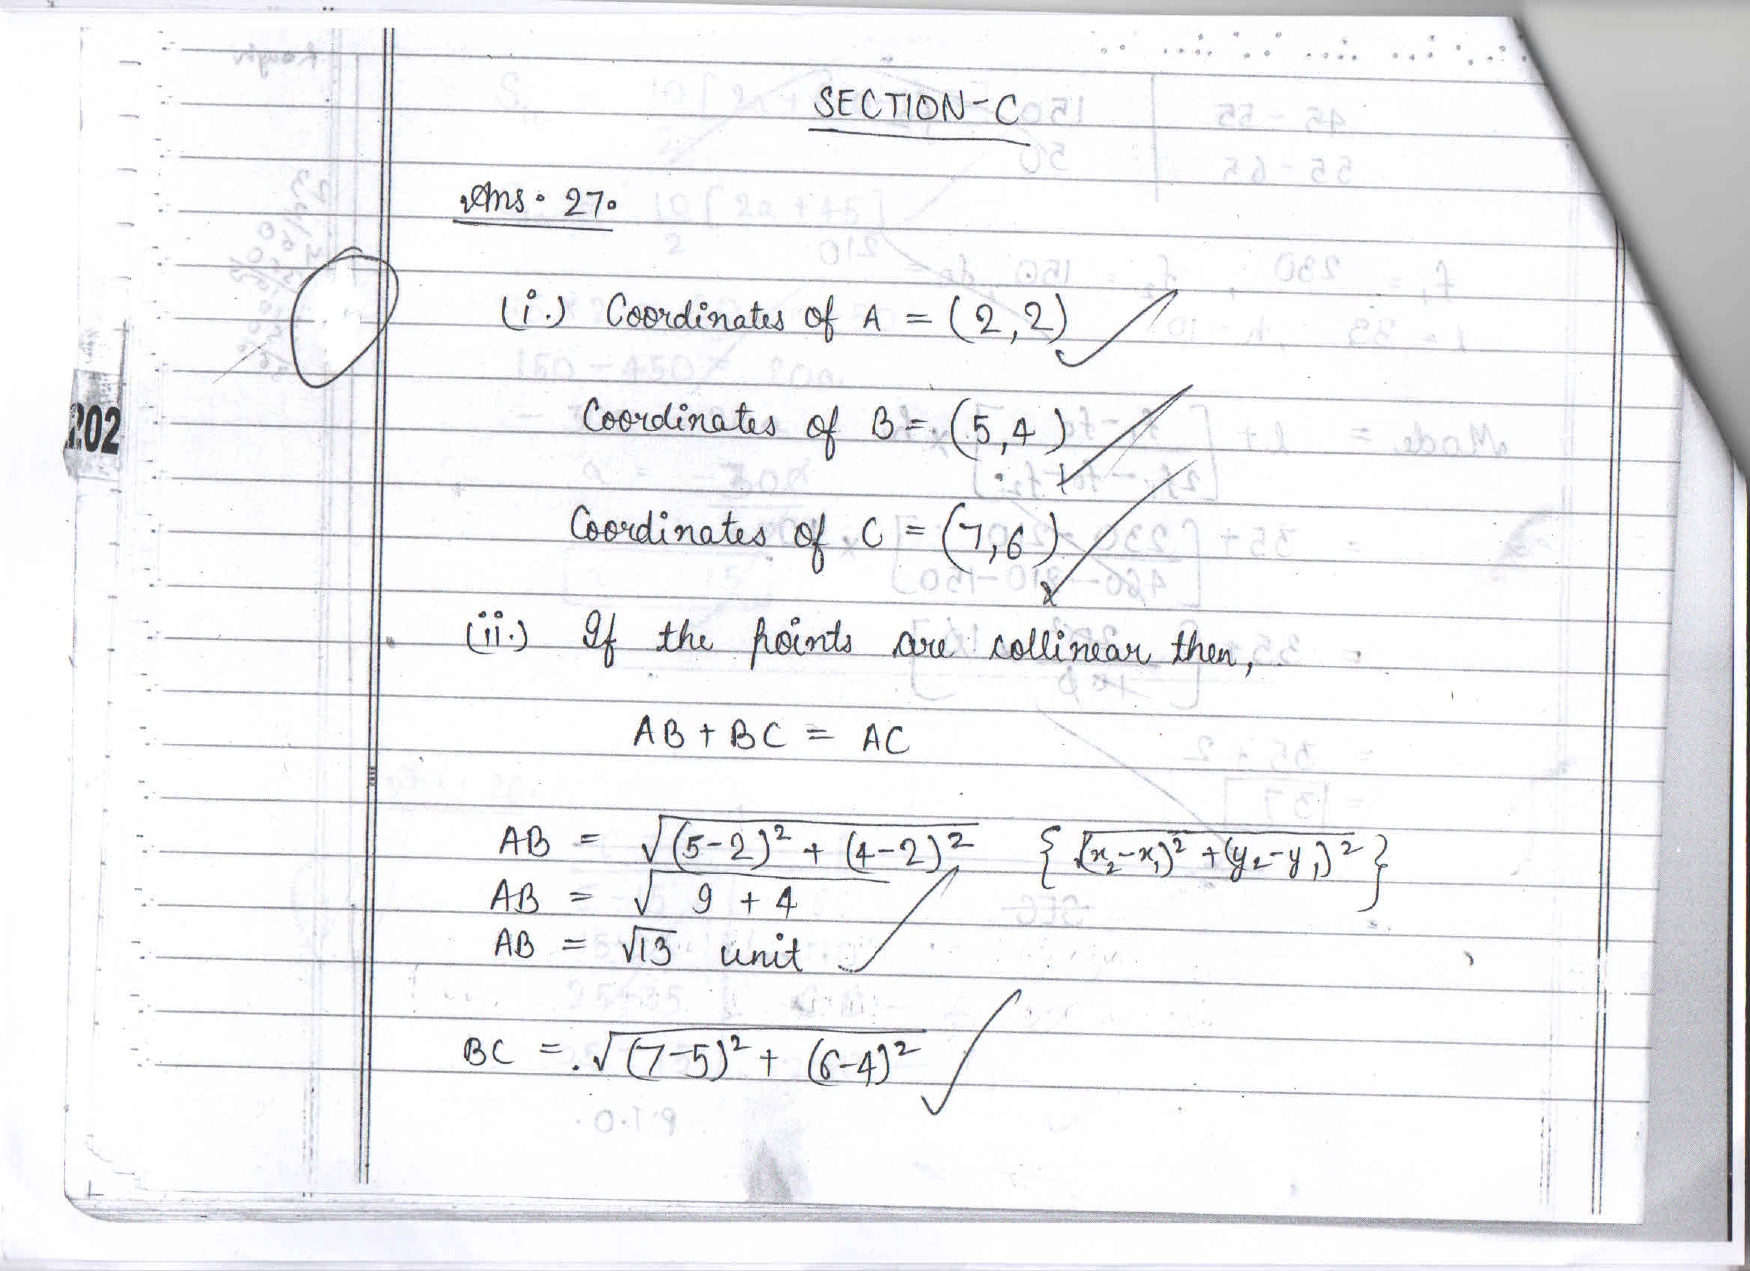 SECTION-C
Ans. 27.
(i.) Coordinates of A = (2,2)
Coordinates of B = (5,4)
Coordinates of C = (7,6)
202
(ii.) If the points are collinear then,
AB + BC = AC
AB = √(5-2)² + (4-2)² { √(x₂-x₁)² + (y₂-y₁)² }
AB = √9 + 4
AB = √13 unit
BC = √(7-5)² + (6-4)²